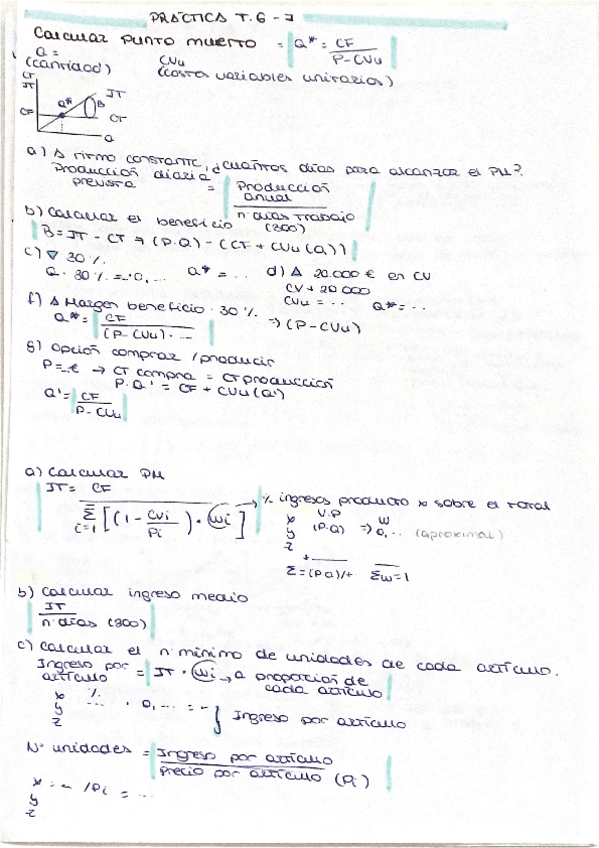 PRÁCTICA T.6 - 7
Calcular PUNTO MUERTO = Q* = CF / P - CVu
Q = (cantidad)
CVu (costes variables unitarios)
CT
IT
IT
Q*
B
CF
CT
Q
a) Δ ritmo constante, ¿cuántos días para alcanzar el PM?
Producción diaria prevista = Producción anual / nº días trabajo (300)
b) Calcular el beneficio
B = IT - CT → (P·Q) - (CF + CVu(Q))
c) ∇ 30%
Q · 30% = 0,... Q* = ..
d) Δ 20.000 € en CV
CV + 20 000
CVu = ... Q* = ..
f) Δ Margen beneficio 30%
Q* = CF / (P - CVu) · ... → (P - CVu)
g) Opción comprar / producir
P = € → CT compra = CT producción
P·Q' = CF + CVu(Q')
Q' = CF / P - CVu
a) Calcular PM
IT = CF / Σ i=1 [(1 - CVi / Pi) · wi] → % ingresos producto x sobre el total
V.P w
x
y (P.Q) → 0,... (aproximal)
z
+
Σ = (PQ)/+ Σw = 1
b) Calcular ingreso medio
IT / nº días (300)
c) Calcular el nº mínimo de unidades de cada artículo.
Ingreso por artículo = IT · wi → a proporción de cada artículo
x %
y ... · 0,... = - } Ingreso por artículo
z
Nº unidades = Ingreso por artículo / Precio por artículo (Pi)
x = - /Pi = ...
y
z